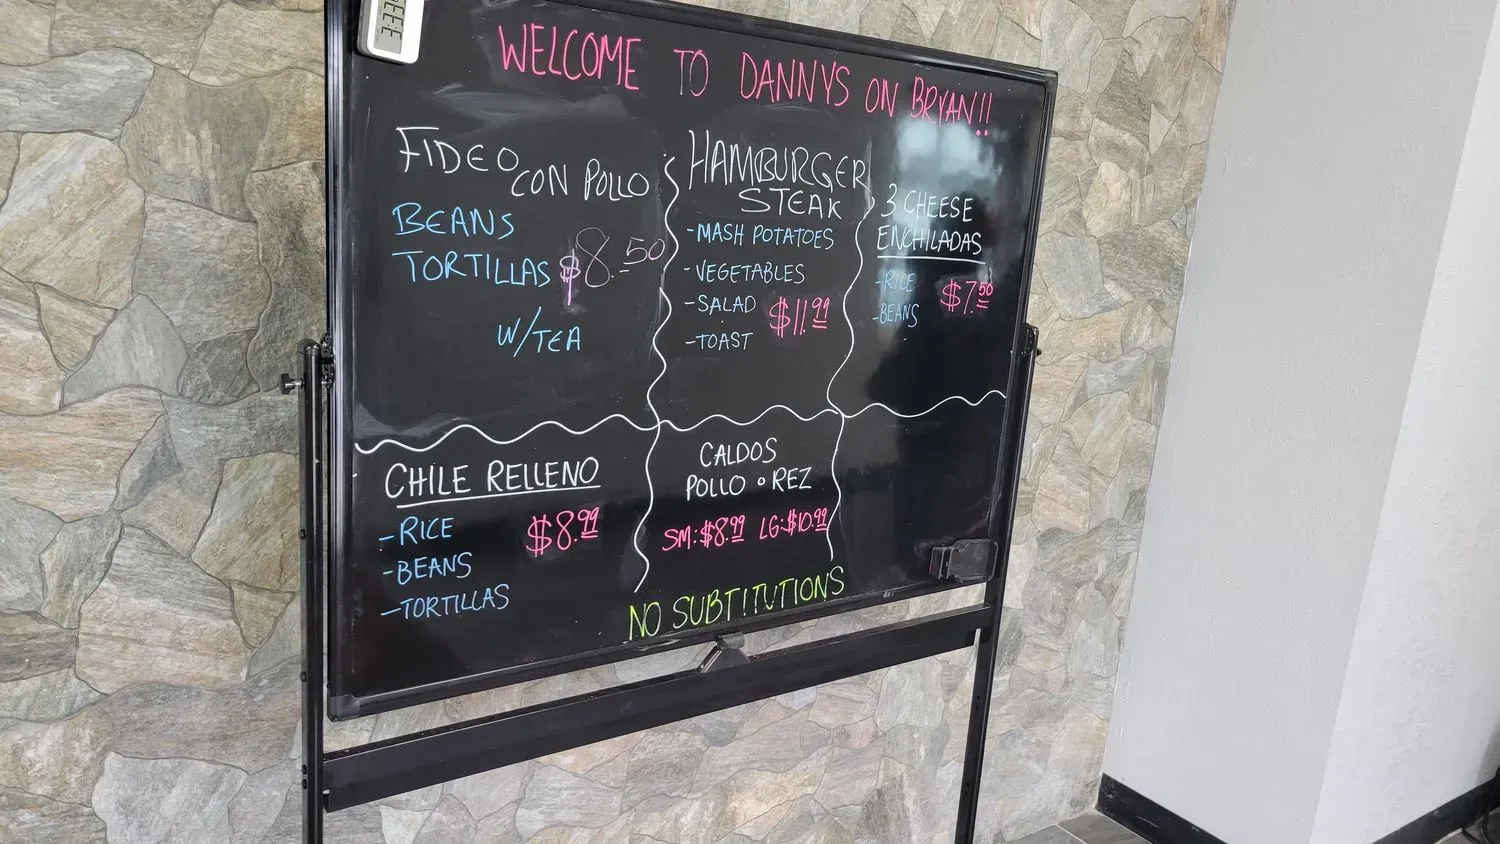 WELCOME TO DANNYS ON BRYAN!!
FIDEO CON POLLO
BEANS
TORTILLAS $8.50
W/TEA
HAMBURGER
STEAK
-MASH POTATOES
-VEGETABLES
-SALAD $11.99
-TOAST
3 CHEESE
ENCHILADAS
-RICE $7.50
-BEANS
CHILE RELLENO
-RICE $8.99
-BEANS
-TORTILLAS
CALDOS
POLLO o REZ
SM:$8.99 LG:$10.99
NO SUBTITUTIONS